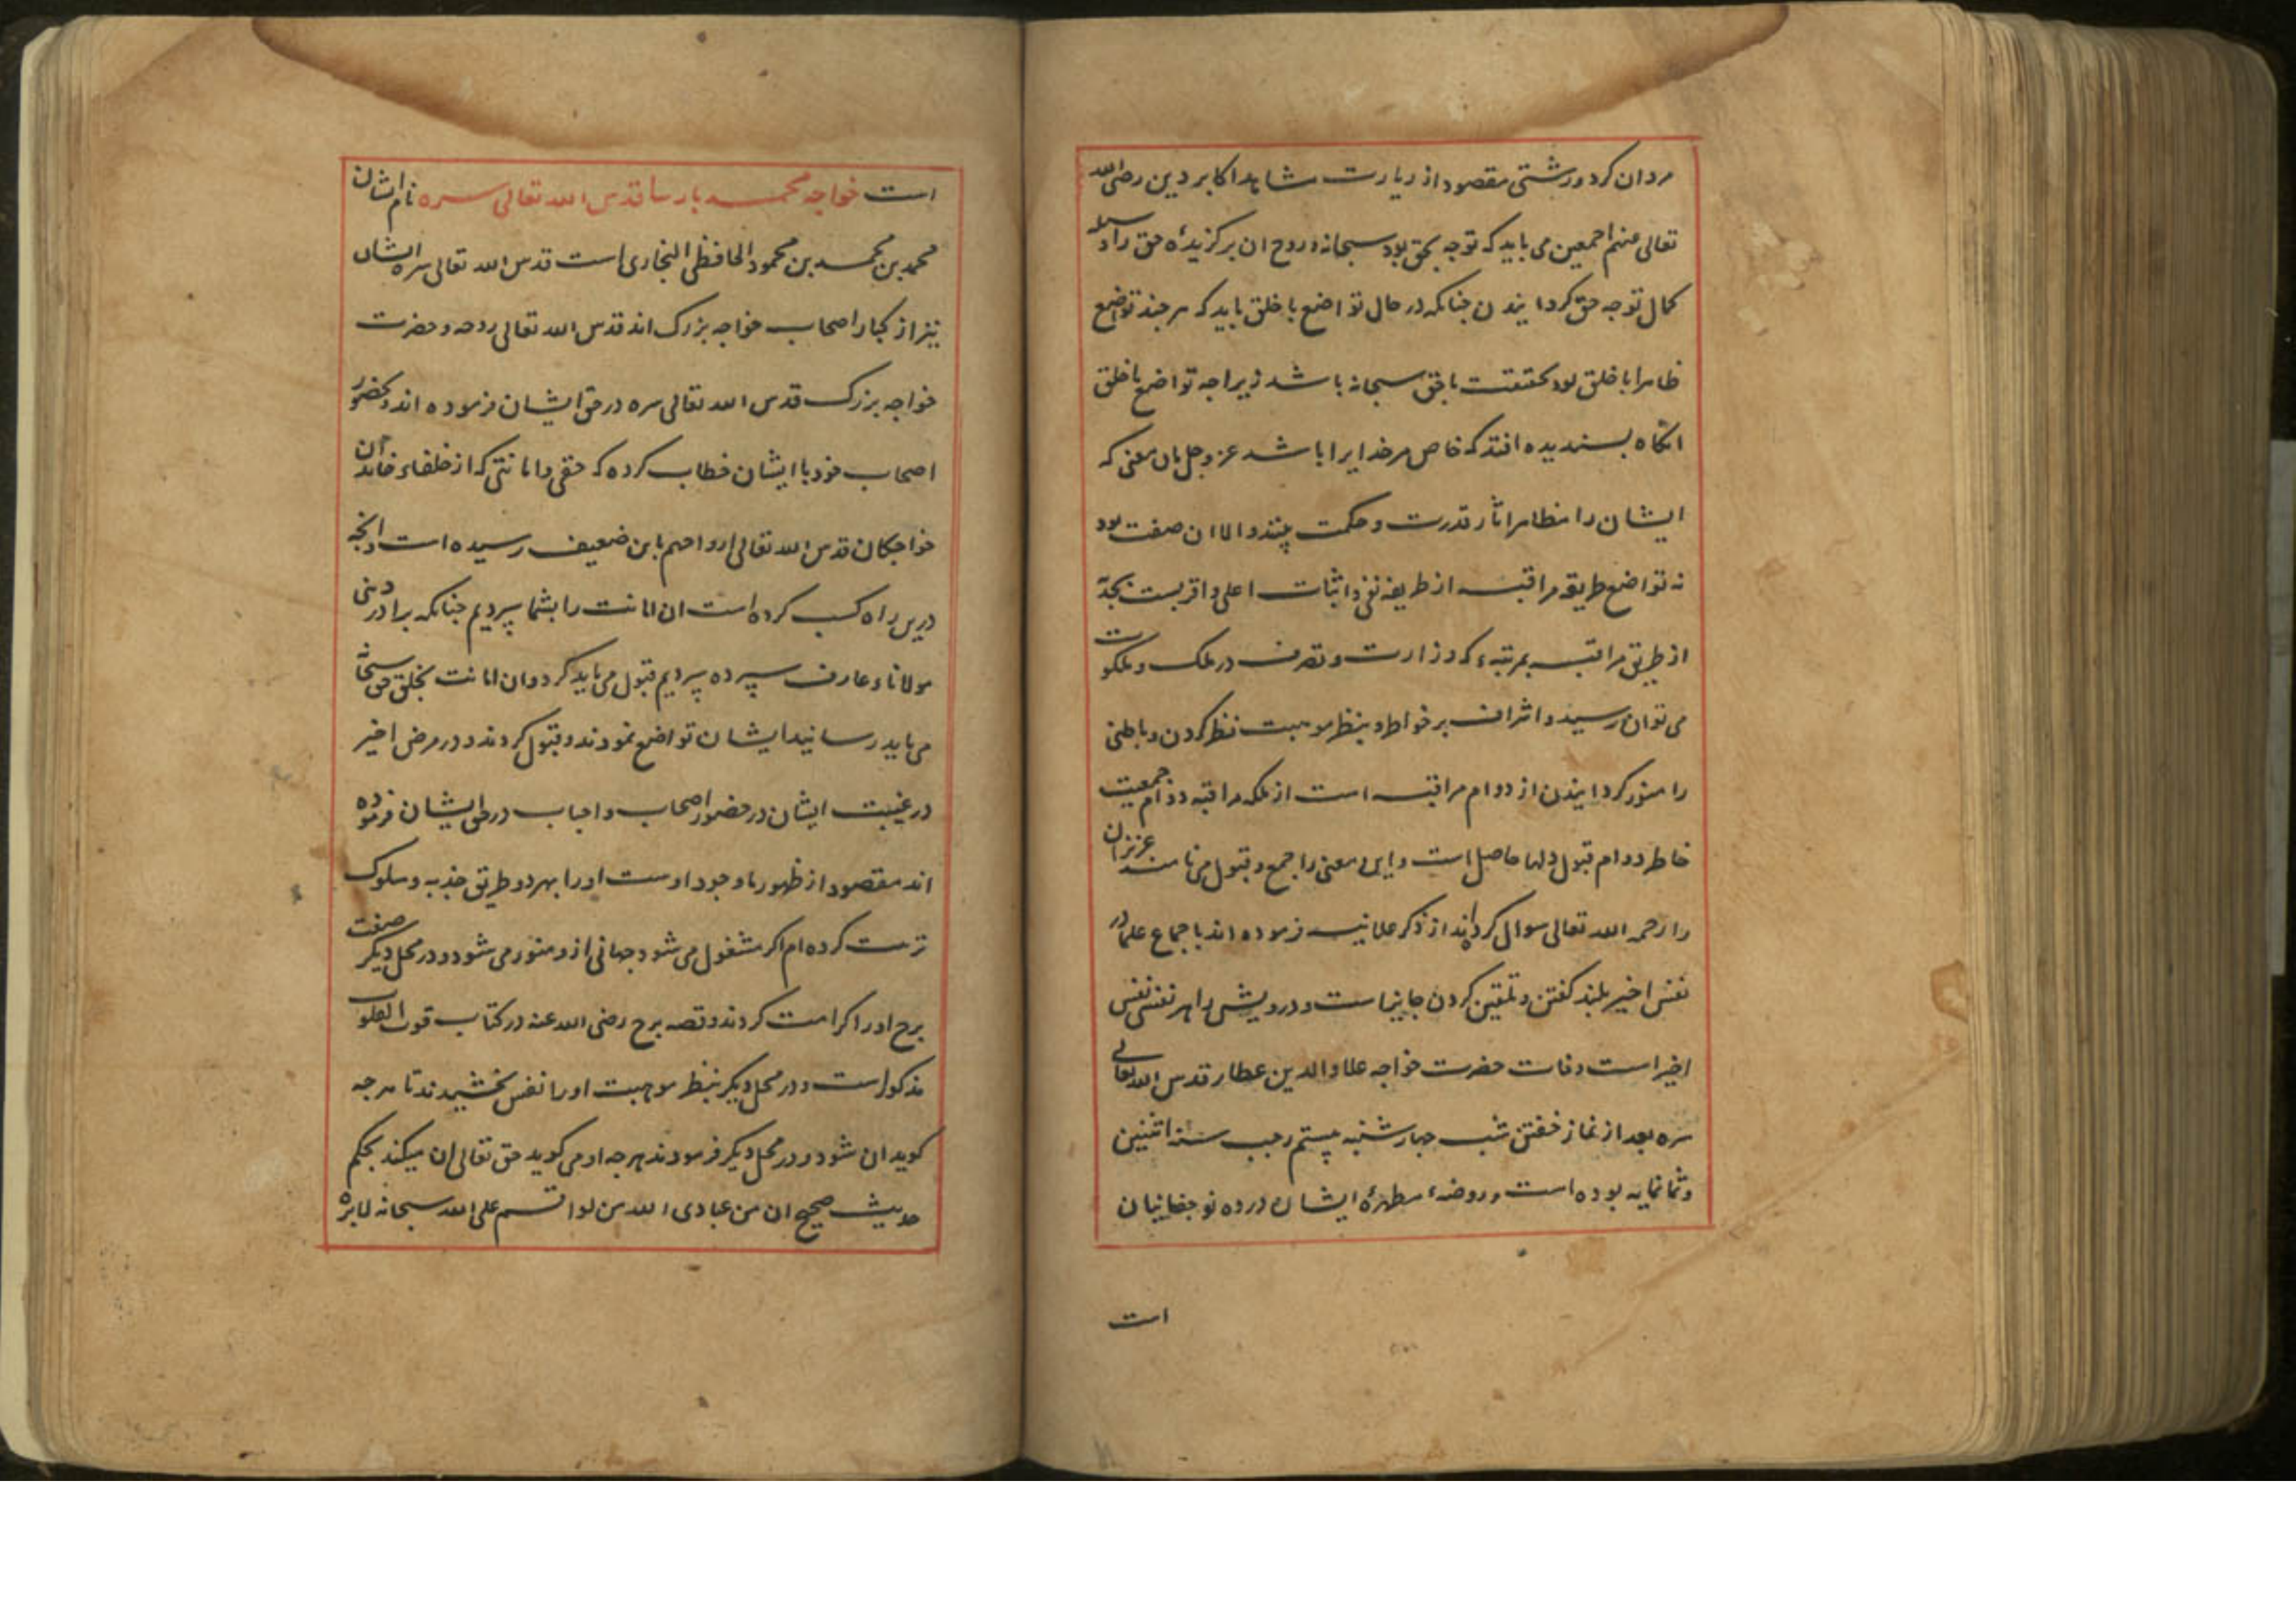 مردان کرد و رشتی مقصود از زیارت مشاهد اکابر دین رضی الله
تعالی عنهم اجمعین می باید که توجه بحق بود سبحانه و روح ان برکزیدۀ حق را وسیله
کمال توجه حق کردانیدن جنانکه در حال تواضع با خلق باید که هر جند تواضع
ظاهرا با خلق بود بحقیقت با حق سبحانه باشد زیراجه تواضع با خلق
انکاه بسندیده افتد که خاص مر خدایرا باشد عز و جل بان معنی که
ایشان را مظاهر اثار قدرت و حکمت بیند و الا ان صفت بود
نه تواضع طریقه مراقبه از طریقه نفی و اثبات اعلی و اقربست بجذبه
از طریق مراقبه بمرتبۀ که وزارت و تصرف در ملک و ملکوت
می توان رسید و اشراف بر خواطر و بنظر موهبت نظر کردن و باطنی
را منور کردانیدن از دوام مراقبه است از ملکه مراقبه دوام جمعیت
خاطر و دوام قبول دلها حاصل است و این معنی را جمع و قبول می نامند عزیزان
را رحمه الله تعالی سوال کرده اند از ذکر علانیه فرموده اند باجماع علما در
نفس اخیر بلند کفتن و تلقین کردن جایز است و درویش را هر نفس نفس
اخیر است وفات حضرت خواجه علاوالدین عطار قدس الله تعالی
سره بعد از نماز خفتن شب جهارشنبه بیستم رجب سنه اثنین
و ثمانمایه بوده است و روضۀ مطهرۀ ایشان در ده نو جغانیان
است
است خواجه محمد بارسا قدس الله تعالی سره نام ایشان
محمد بن محمد بن محمود الحافظی البخاری است قدس الله تعالی سره ایشان
نیز از کبار اصحاب خواجه بزرک اند قدس الله تعالی روحه و حضرت
خواجه بزرک قدس الله تعالی سره در حق ایشان فرموده اند و بحضور
اصحاب خود با ایشان خطاب کرده که حقی و امانتی که از خلفاء خاندان
خواجکان قدس الله تعالی ارواحهم باین ضعیف رسیده است و انجه
درین راه کسب کرده است ان امانت را بشما سپردیم جنانکه برادر دینی
مولانا عارف سپرده سپردیم قبول می باید کرد و ان امانت بخلق حق سبحانه
می باید رسانید ایشان تواضع نمودند و قبول کردند و در مرض اخیر
در غیبت ایشان در حضور اصحاب و احباب در حق ایشان فرموده
اند مقصود از ظهور ما وجود اوست او را بهر دو طریق جذبه و سلوک
تربیت کرده ام اکر مشغول می شود جهانی از و منور می شود و در محل دیکر صفت
برح او را کرامت کردند و قصه برح رضی الله عنه در کتاب قوت القلوب
مذکور است و در محل دیکر بنظر موهبت او را نفس بخشیدند تا هرجه
کوید ان شود و در محل دیکر فرمودند هرجه او می کوید حق تعالی ان میکند بحکم
حدیث صحیح ان من عبادی الله من لو اقسم علی الله سبحانه لابره